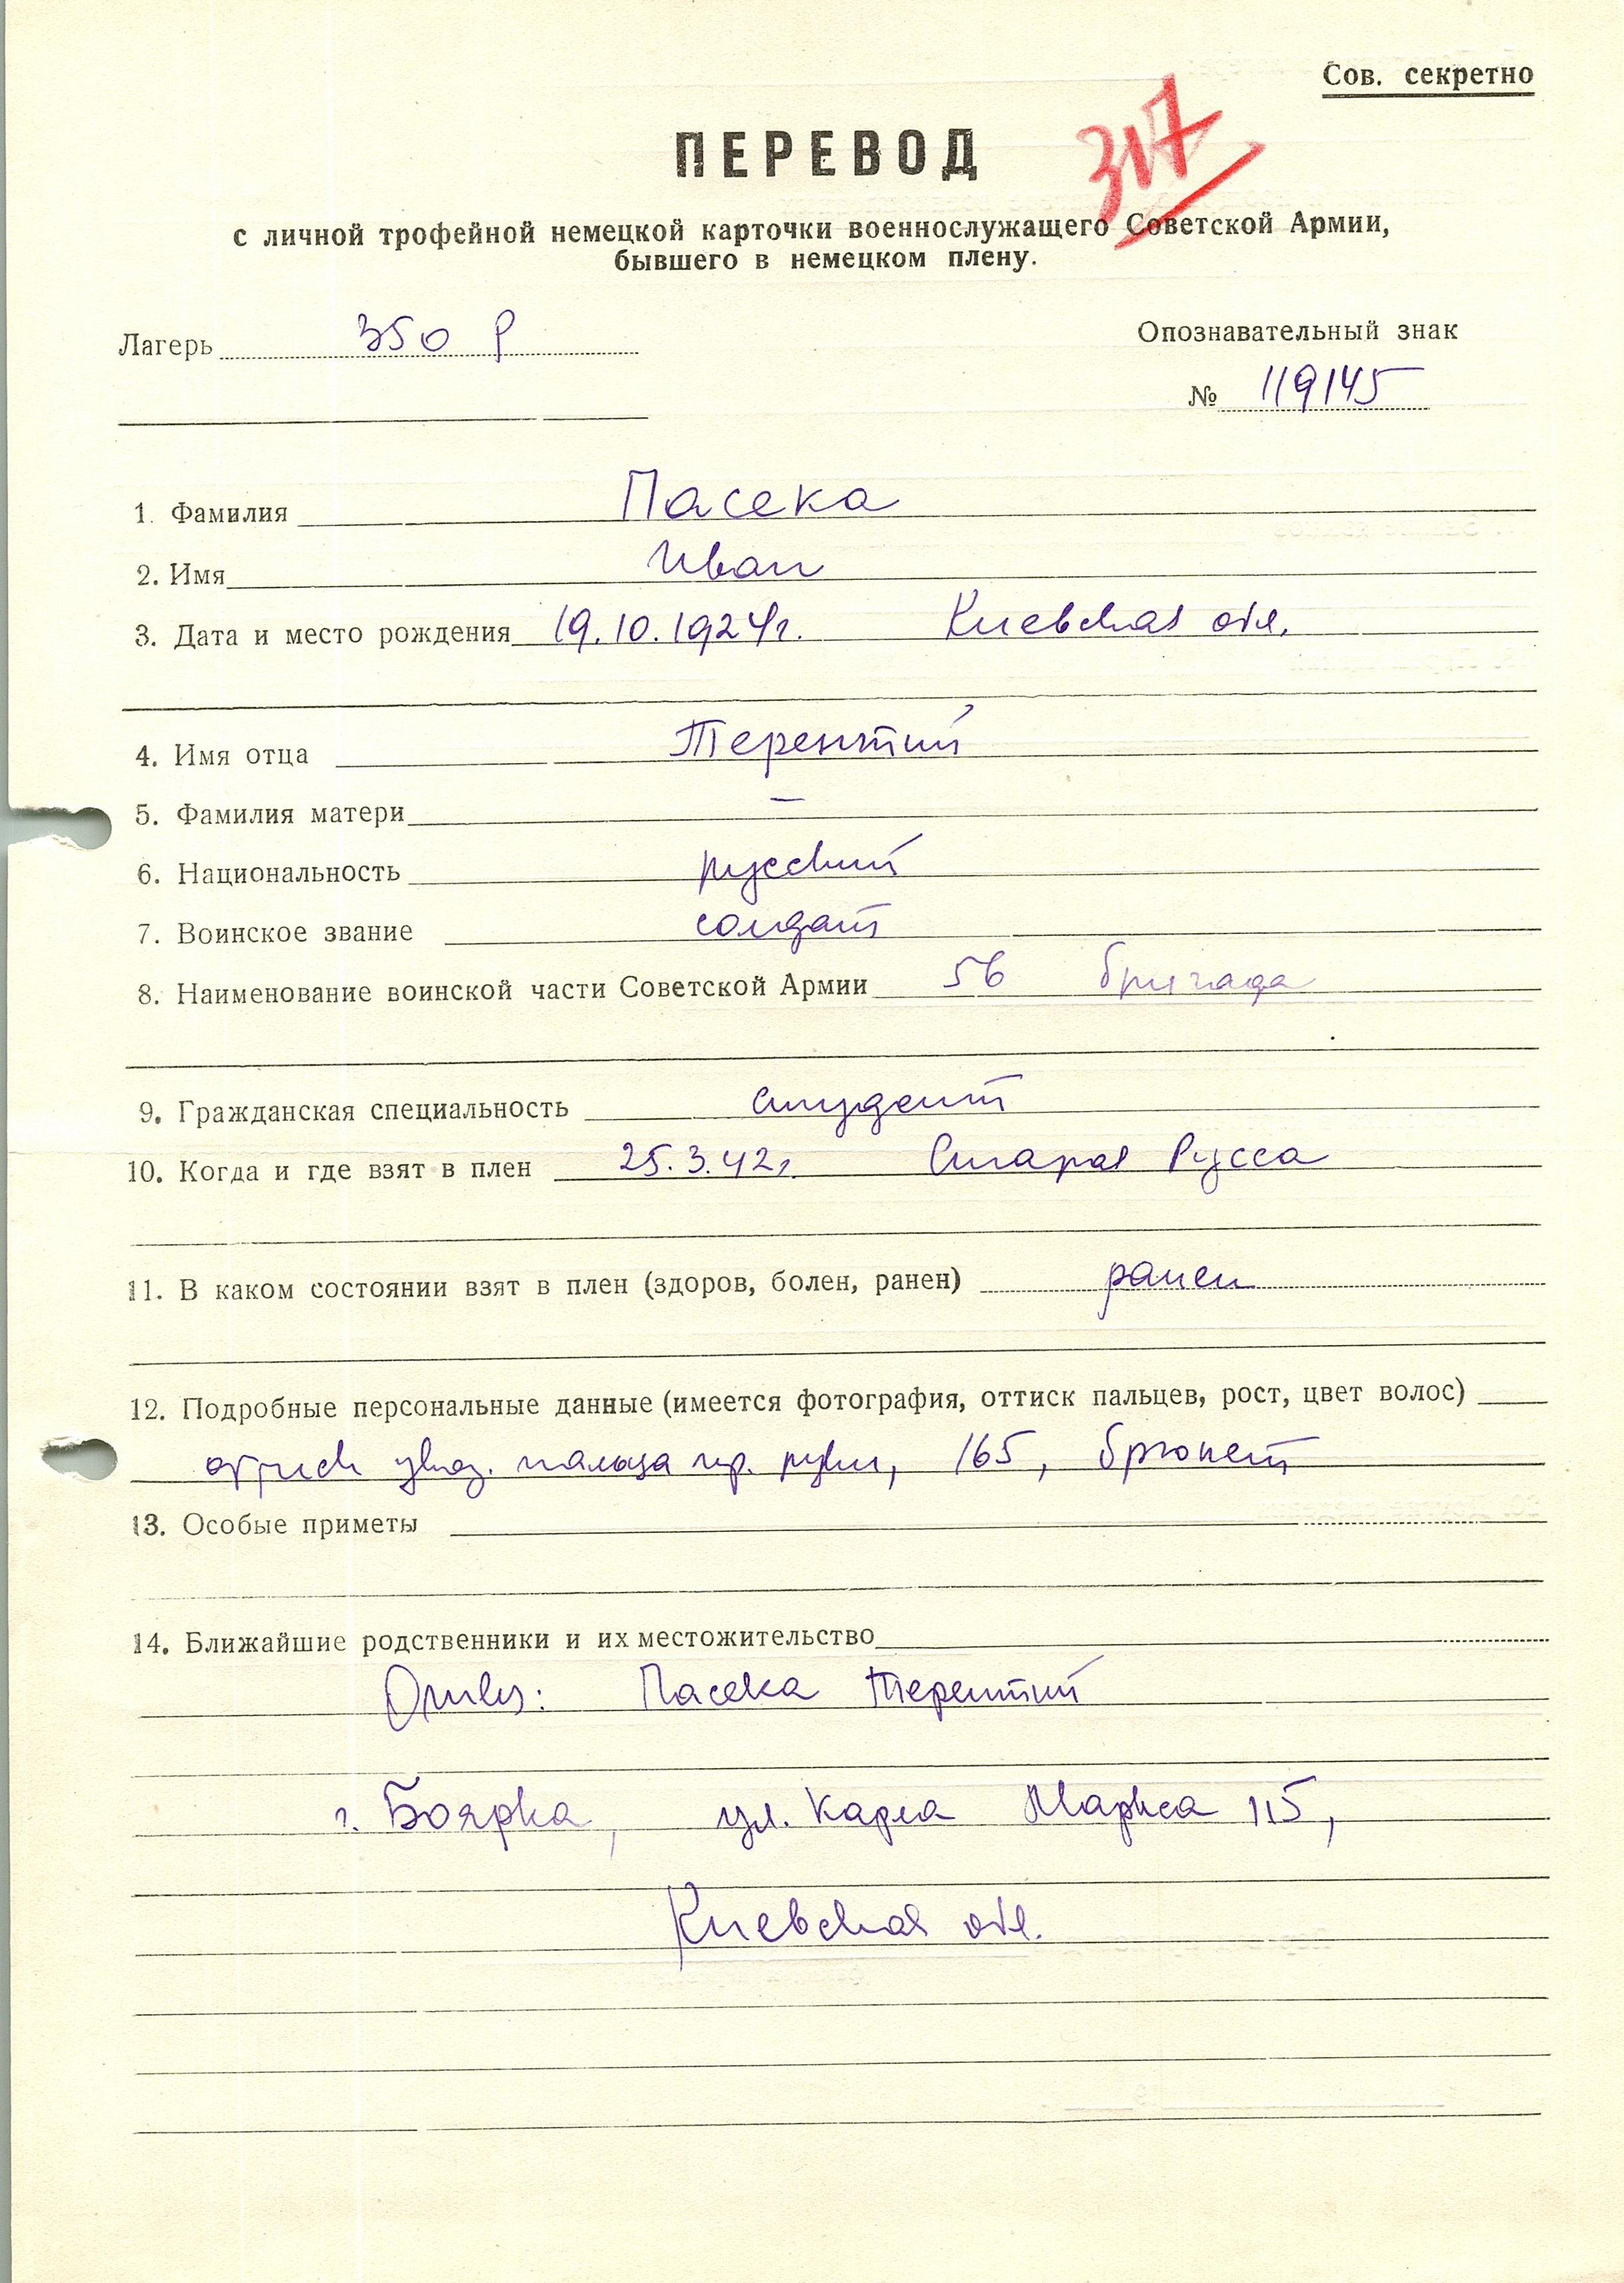 Сов. секретно
ПЕРЕВОД
317
с личной трофейной немецкой карточки военнослужащего Советской Армии,
бывшего в немецком плену.
Лагерь 350 Р
Опознавательный знак
№ 119145
1. Фамилия Пасека
2. Имя Иван
3. Дата и место рождения 19.10.1924г. Киевская обл.
4. Имя отца Терентий
5. Фамилия матери —
6. Национальность русский
7. Воинское звание солдат
8. Наименование воинской части Советской Армии 56 бригада
9. Гражданская специальность студент
10. Когда и где взят в плен 25.3.42г. Старая Русса
11. В каком состоянии взят в плен (здоров, болен, ранен) ранен
12. Подробные персональные данные (имеется фотография, оттиск пальцев, рост, цвет волос)
оттиск указ. пальца пр. руки, 165, брюнет
13. Особые приметы
14. Ближайшие родственники и их местожительство
Отец: Пасека Терентий
г. Боярка, ул. Карла Маркса 115,
Киевская обл.